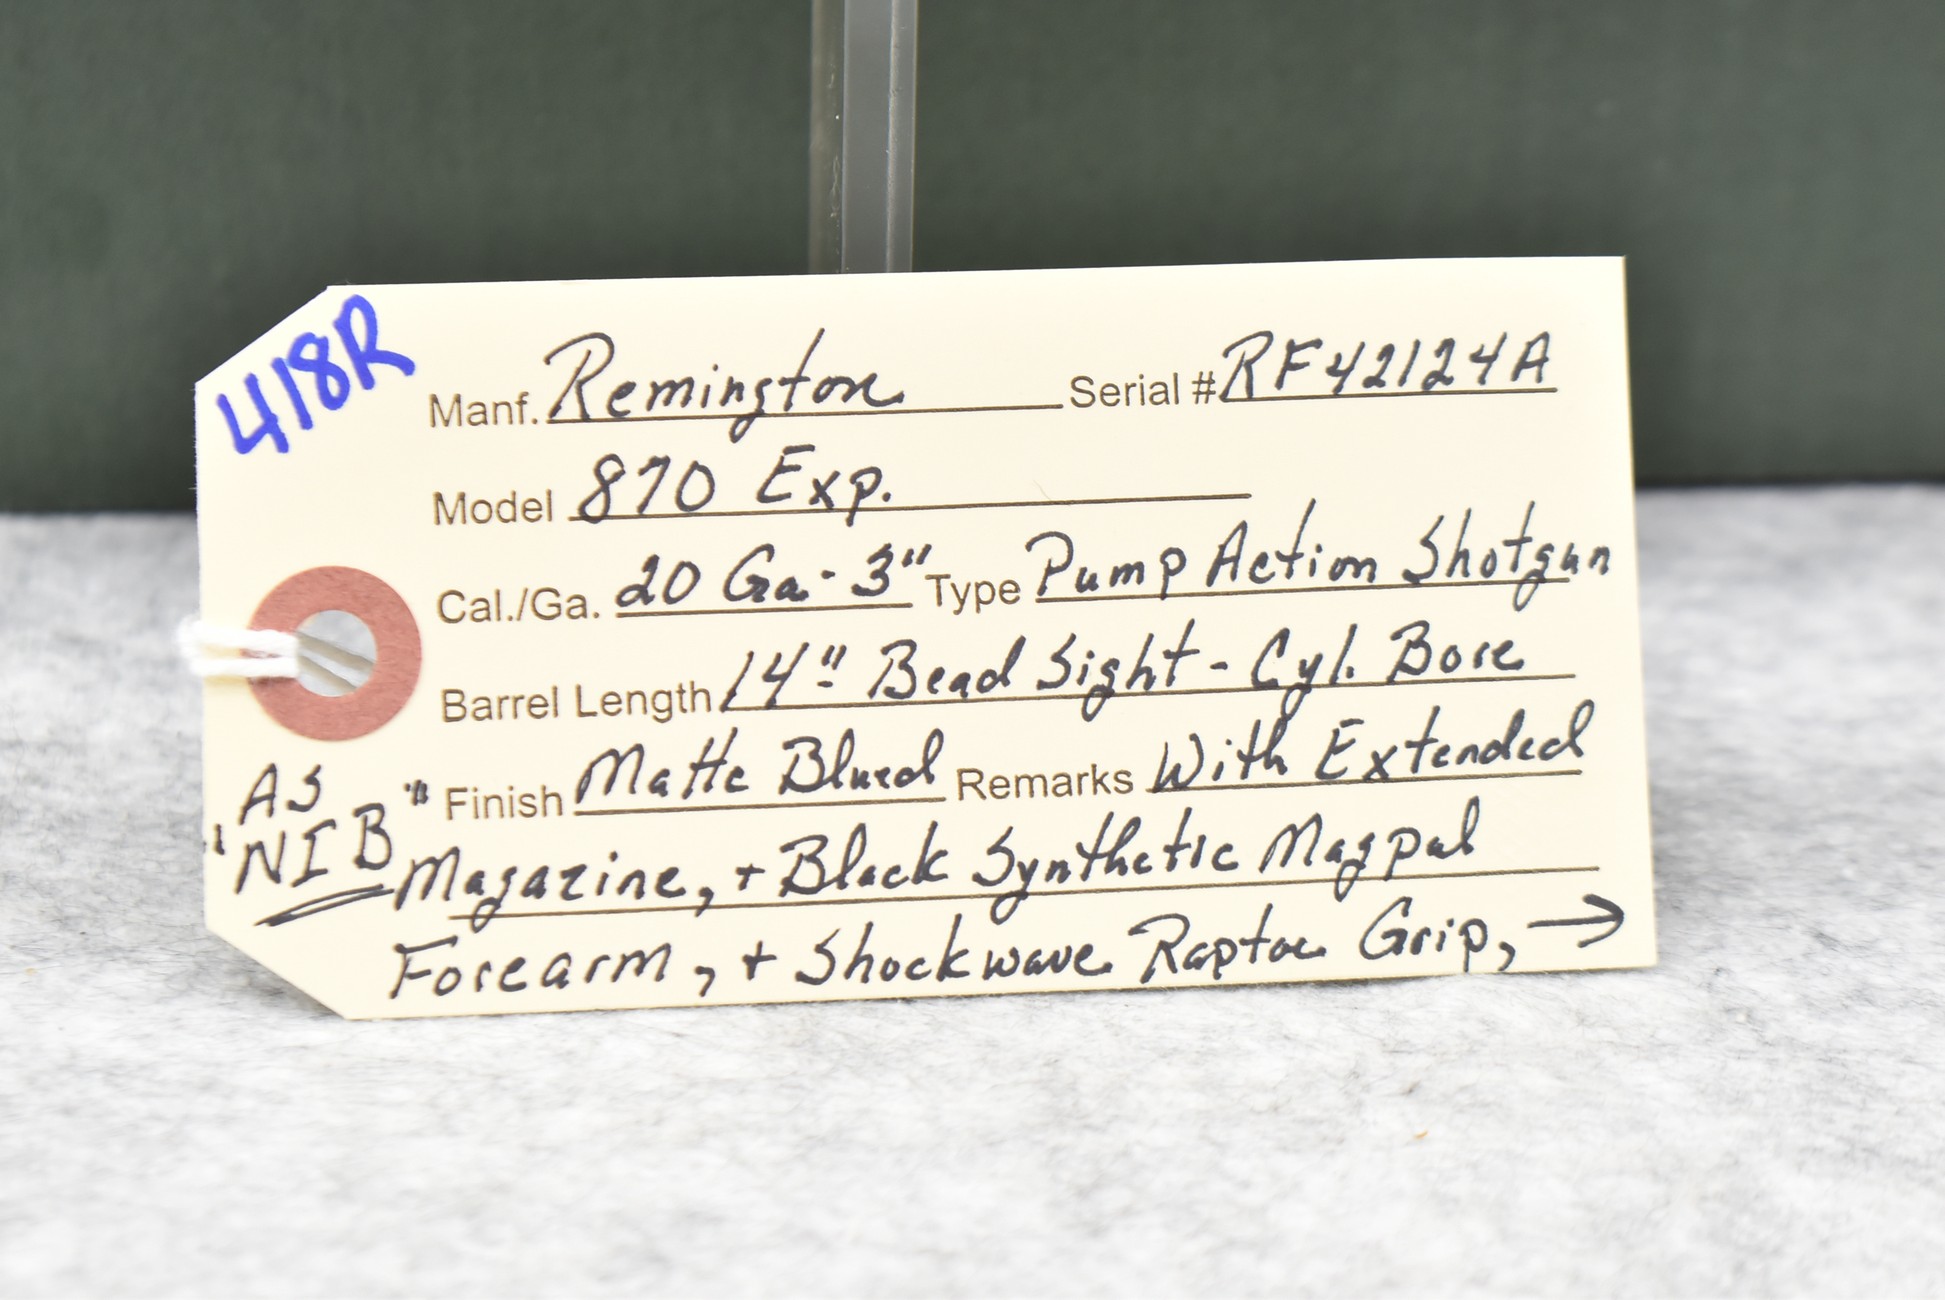 418R
Manf. Remington Serial # RF42124A
Model 870 Exp.
Cal./Ga. 20 Ga - 3" Type Pump Action Shotgun
Barrel Length 14" Bead Sight - Cyl. Bore
AS "NIB"
Finish Matte Blued Remarks With Extended
Magazine, + Black Synthetic Magpul
Forearm, + Shockwave Raptor Grip, →